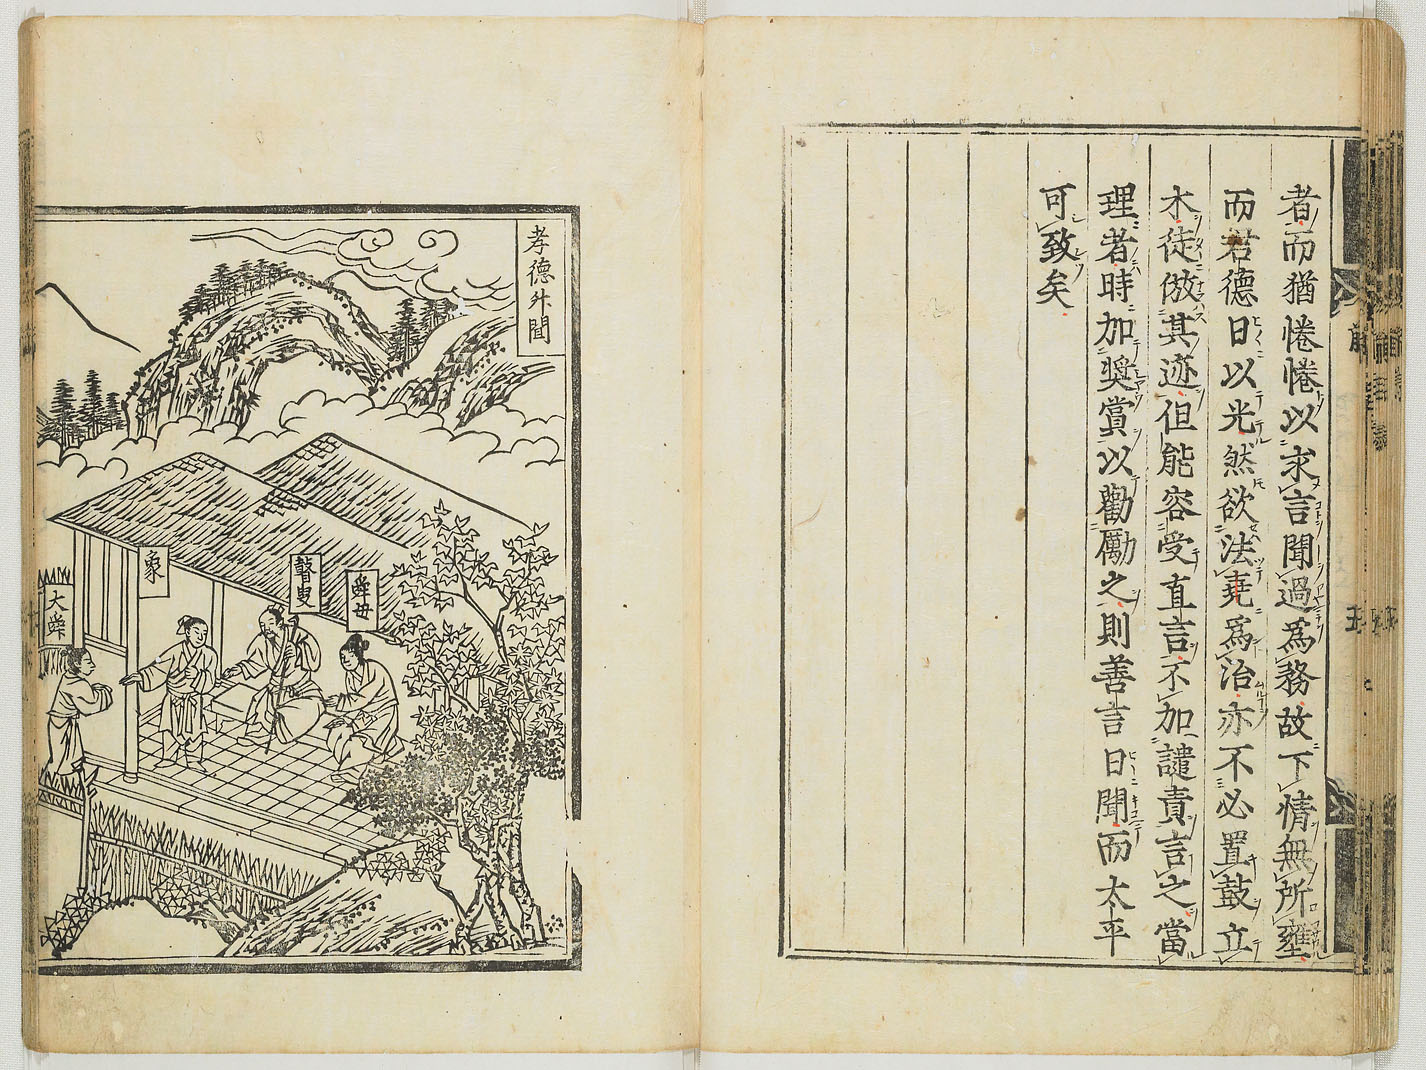 者而猶惓惓以求言聞過爲務故下情無所壅
而君德日以光然欲法堯爲治亦不必置鼓立
木徒倣其迹但能容受直言不加譴責言之當
理者時加奬賞以勸勵之則善言日聞而太平
可致矣
孝德升聞
舜母
瞽叟
象
大舜